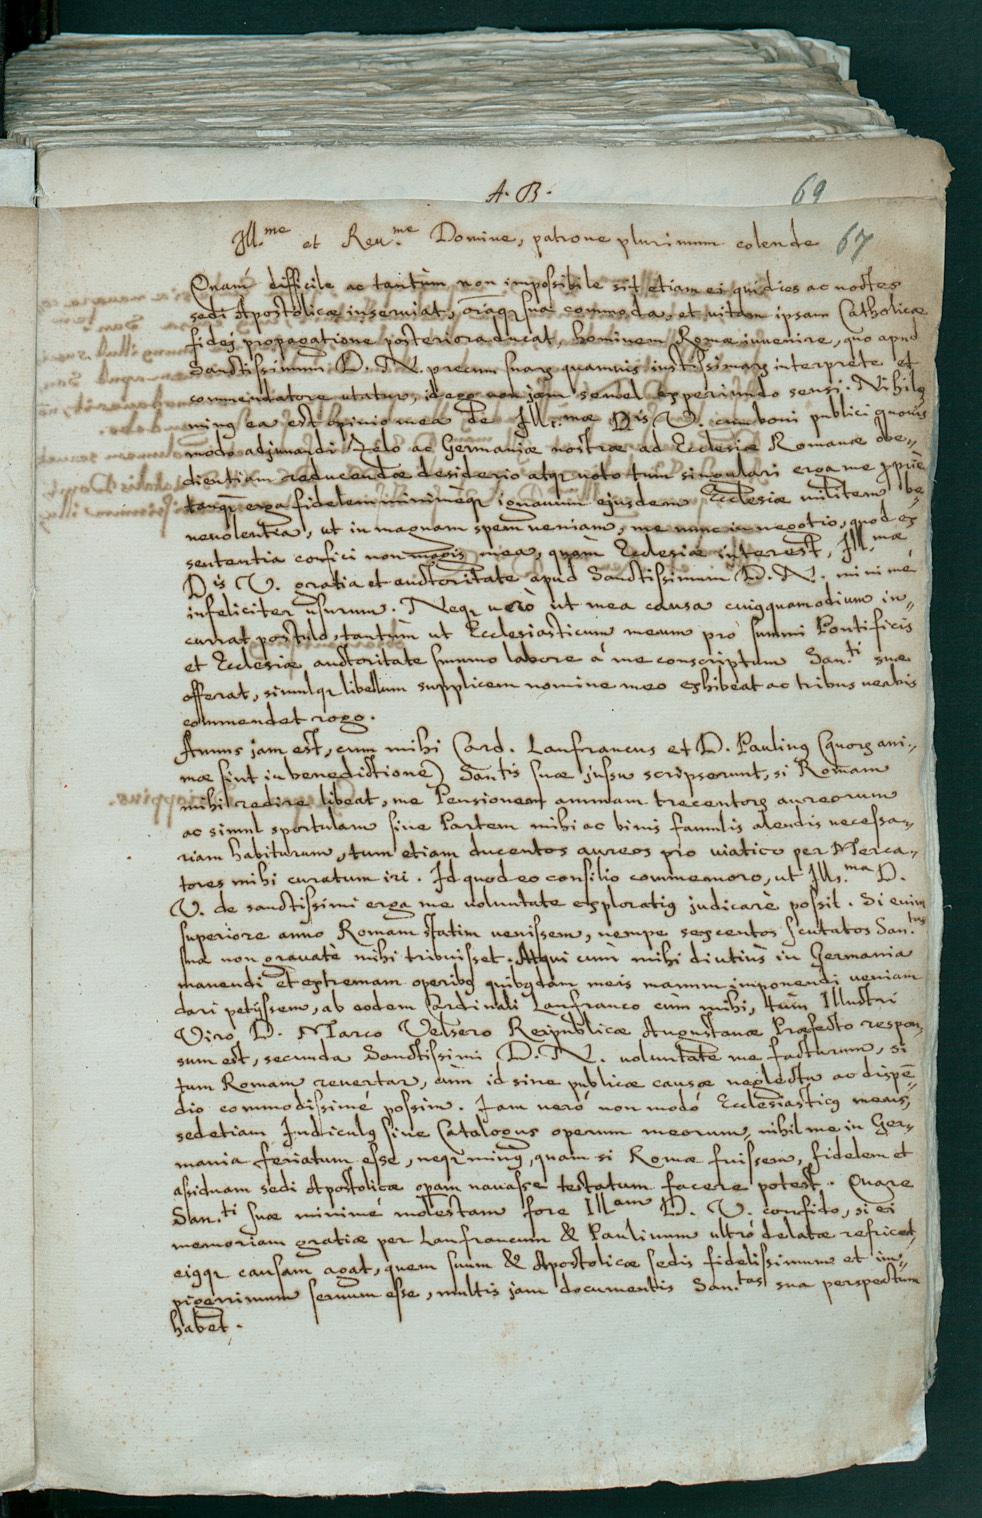 A. B.
69
Ill.me et Reu.me Domine, patrone plurimum colende
67
Quam difficile ac tantùm non impossibile sit etiam ei qui dies ac noctes
sedi Apostolicæ inserviat, oiaq; sua commoda, et uitam ipsam Catholicæ
fidej propagatione posteriora ducat, hominem Romæ inuenire, quo apud
Sanctissimum D. N. precum suarum quamuis iustissimarum interprete et
commendatore utatur, id ego non jam semel experiundo sensi. Nihilo
minus ea est opinio mea de Ill.mæ Dis V. cum boni publici quouis
modo adjuuandi zelo ac Germaniæ nostræ ad Ecclesiæ Romanæ obe„
dientiam reducendæ desiderio atq; uoto tum singulari erga me
tanq; erga fidelem minimeq; ignauum ejusdem Ecclesiæ militem be„
neuolentia, ut in magnam spem ueniam, me nunc in negotio, quod ex
sententia confici non magis mea, quàm Ecclesiæ interest, Ill.mæ
Dis V. gratia et auctoritate apud Sanctissimum D. N. minimè
infeliciter usurum. Neq; uerò ut mea causa cuiusquam odium in„
currat postulo, tantùm ut Ecclesiasticum meum pro summi Pontificis
et Ecclesiæ auctoritate summo labore à me conscriptum San.ti suæ
offerat, simulq; libellum supplicem nomine meo exhibeat ac tribus uerbis
commendet rogo.
Annus jam est, cum mihi Card. Lanfrancus et D. Paulinus (quorum ani„
mæ sint in benedictione) San.tis suæ jussu scripserunt, si Romam
mihi redire libeat, me Pensionem annuam trecentorum aureorum
ac simul sportulam siue Partem mihi ac binis famulis alendis necessa„
riam habiturum, tum etiam ducentos aureos pro uiatico per Merca„
tores mihi curatum iri. Id quod eo consilio commemoro, ut Ills.ma D.
V. de sanctissimi erga me uoluntate exploratius judicare possit. Si enim
superiore anno Romam statim uenissem, nempe sexcentos scutatos San.tas
sua non grauatè mihi tribuisset. Atqui cùm mihi diutiùs in Germania
manendi et extremam operibus quibusdam meis manum imponendi ueniam
dari petijssem, ab eodem Cardinali Lanfranco cùm mihi, tùm Illustri
Viro D. Marco Velsero Reipublicæ Augustanæ Præfecto respon„
sum est, secunda Sanctissimi D. N. uoluntate me facturum, si
tum Romam reuertar, cùm id sine publicæ causæ neglectu ac dispē„
dio commodissimè possim. Iam uerò non modò Ecclesiasticus meus,
sed etiam Indiculus siue Catalogus operum meorum, nihil me in Ger„
mania feriatum esse, neq; minus, quam si Romæ fuissem, fidelem et
assiduam sedi Apostolicæ opam nauasse testatum facere potest. Quare
San.ti suæ minimè molestam fore Ill.am D. V. confido, si ei
memoriam gratiæ per Lanfrancum & Paulinum ultrò delatæ refricet,
eiusq; causam agat, quem suum & Apostolicæ sedis fidelissimum et im„
pigerrimum seruum esse, multis jam documentis San.tas sua perspectum
habet.